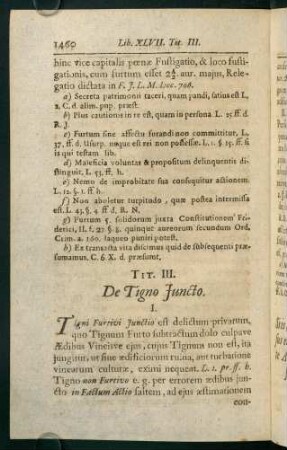 1460 Lib. XLVII. Tit. III.
hinc vice capitalis pœnæ Fustigatio, & loco fusti-
gationis, cum furtum esset 2¼. aur. majus, Rele-
gatio dictata in F. J. L. M. Doc. 708.
a) Secreta patrimonii taceri, quam pandi, satius est L.
2. C. d. alim. pup. præst.
b) Plus cautione in re est, quam in persona L. 25 ff d.
R. J.
c) Furtum sine affectu furandi non committitur. L.
37. ff. d. Usurp. neque est rei non possessæ. L. 1. §. 15. ff. s
is qui testam lib.
d) Maleficia voluntas & propositum delinquentis di-
stinguit, L. 53, ff. h.
e) Nemo de improbitate sua consequitur actionem.
L. 12. §. 1. ff. h.
f) Non aboletur turpitudo, quæ postea intermissa
est. L. 43. §. 4 ff d. R. N.
g) Furtum 5. solidorum juxta Constitutionem Fri-
derici, II. f. 27 §. 8. quinque aureorum secundum Ord.
Crim. a. 160. laqueo puniri potest.
h) Ex transacta vita discimus quid de subsequenti præ-
sumamus. C. 6 X. d. præsumt.
TIT. III.
De Tigno Juncto.
I.
Tigni Furtivi Junctio est delictum privatum,
quo Tignum Furto subtractum dolo culpave
Ædibus Vineisve ejus, cujus Tignum non est, ita
jungitur, ut sine ædificiorum ruina, aut turbatione
vinearum culturæ, eximi nequeat. L. 1. pr. ff. h.
Tigno non Furtivo v. g. per errorem ædibus jun-
cto in Factum Actio saltem, ad ejus æstimationem
con-